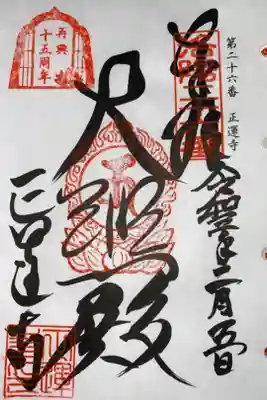 第二十六番 正運寺
奉拝
令和 年二月五日
大悲殿
正運寺
再興
十五周年